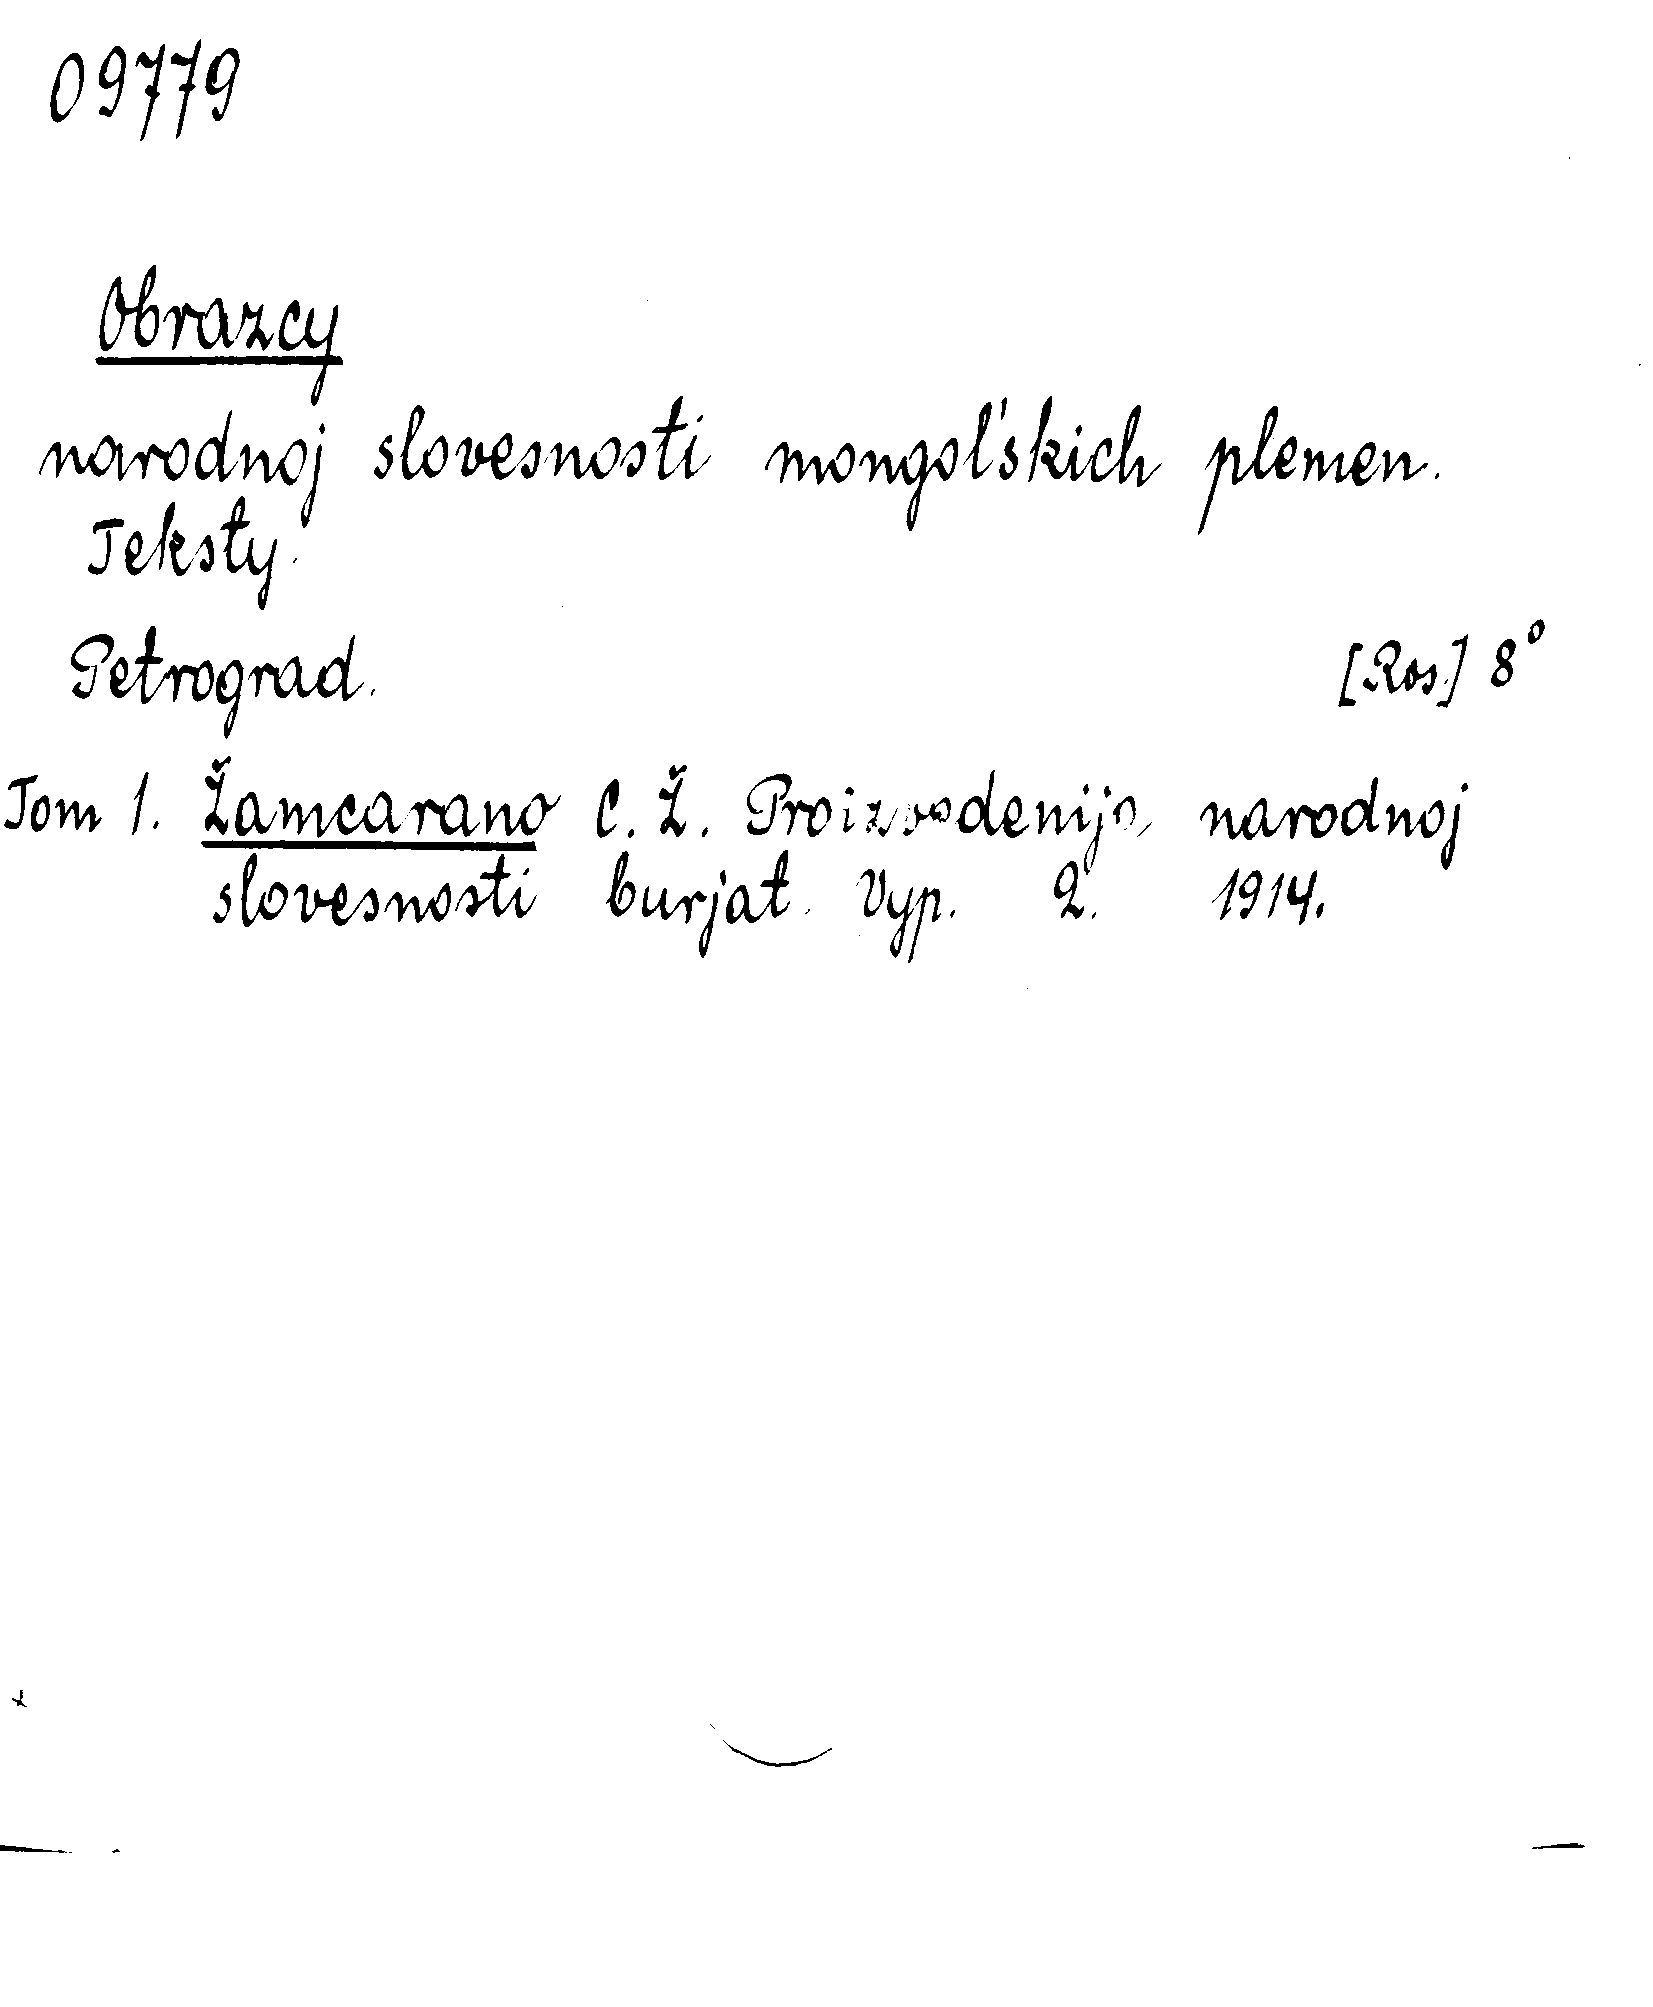 09779
Obrazcy
narodnoj slovesnosti mongol'skich plemen.
Teksty.
Petrograd. [Ros.] 8°
Tom 1. Žamcarano C. Ž. Proizvodenija narodnoj
slovesnosti burjat. Vyp. 2. 1914.